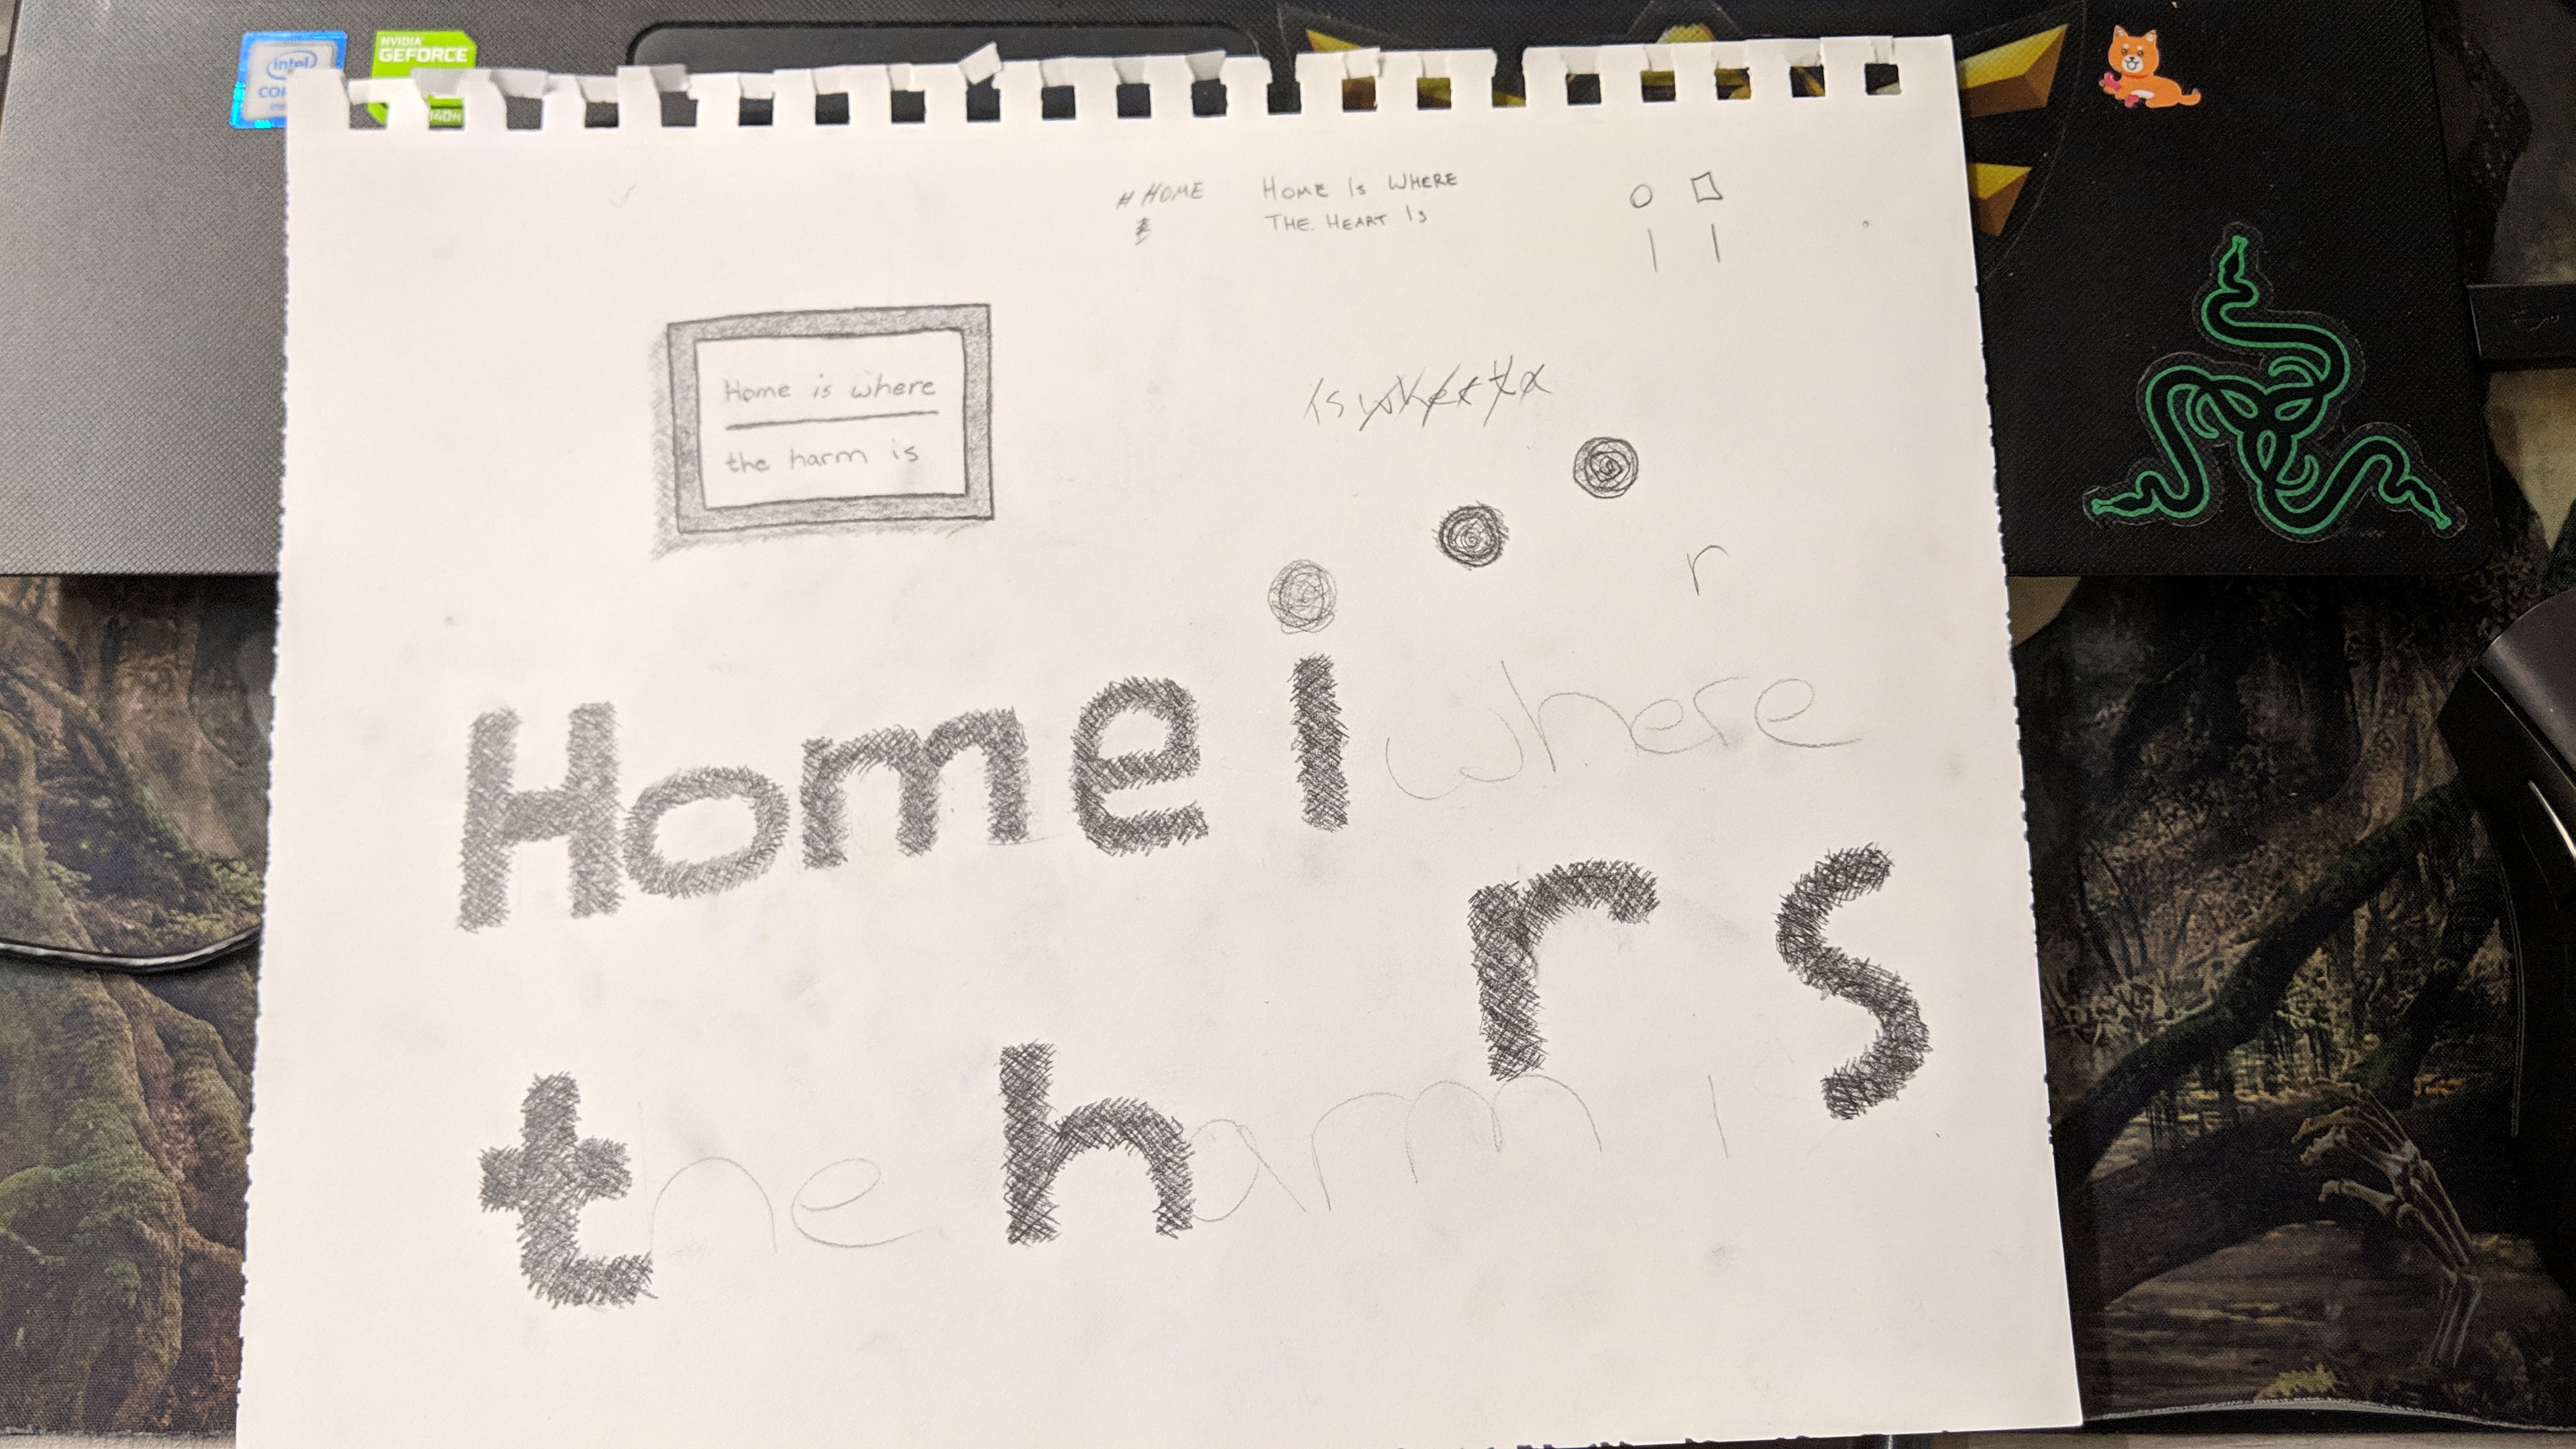 intel
COR
NVIDIA
GEFORCE
940M
# HOME
HOME IS WHERE
THE HEART IS
Home is where
the harm is
is
r
Home i where
r s
the harm i